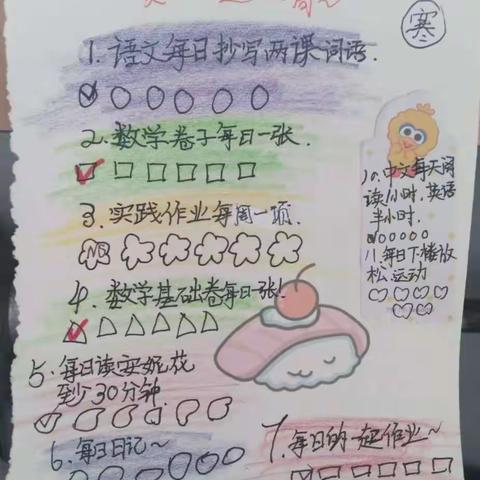 寒
1.语文每日抄写两课词语.
2.数学卷子每日一张.
3.实践作业每周一项.
4.数学基础卷每日一张!
5.每日读安妮花
至少30分钟.
6.每日日记~
7.每日的一起作业~
10.中文每天阅
读1小时.英语
半小时.
11.每日下楼放
松.运动